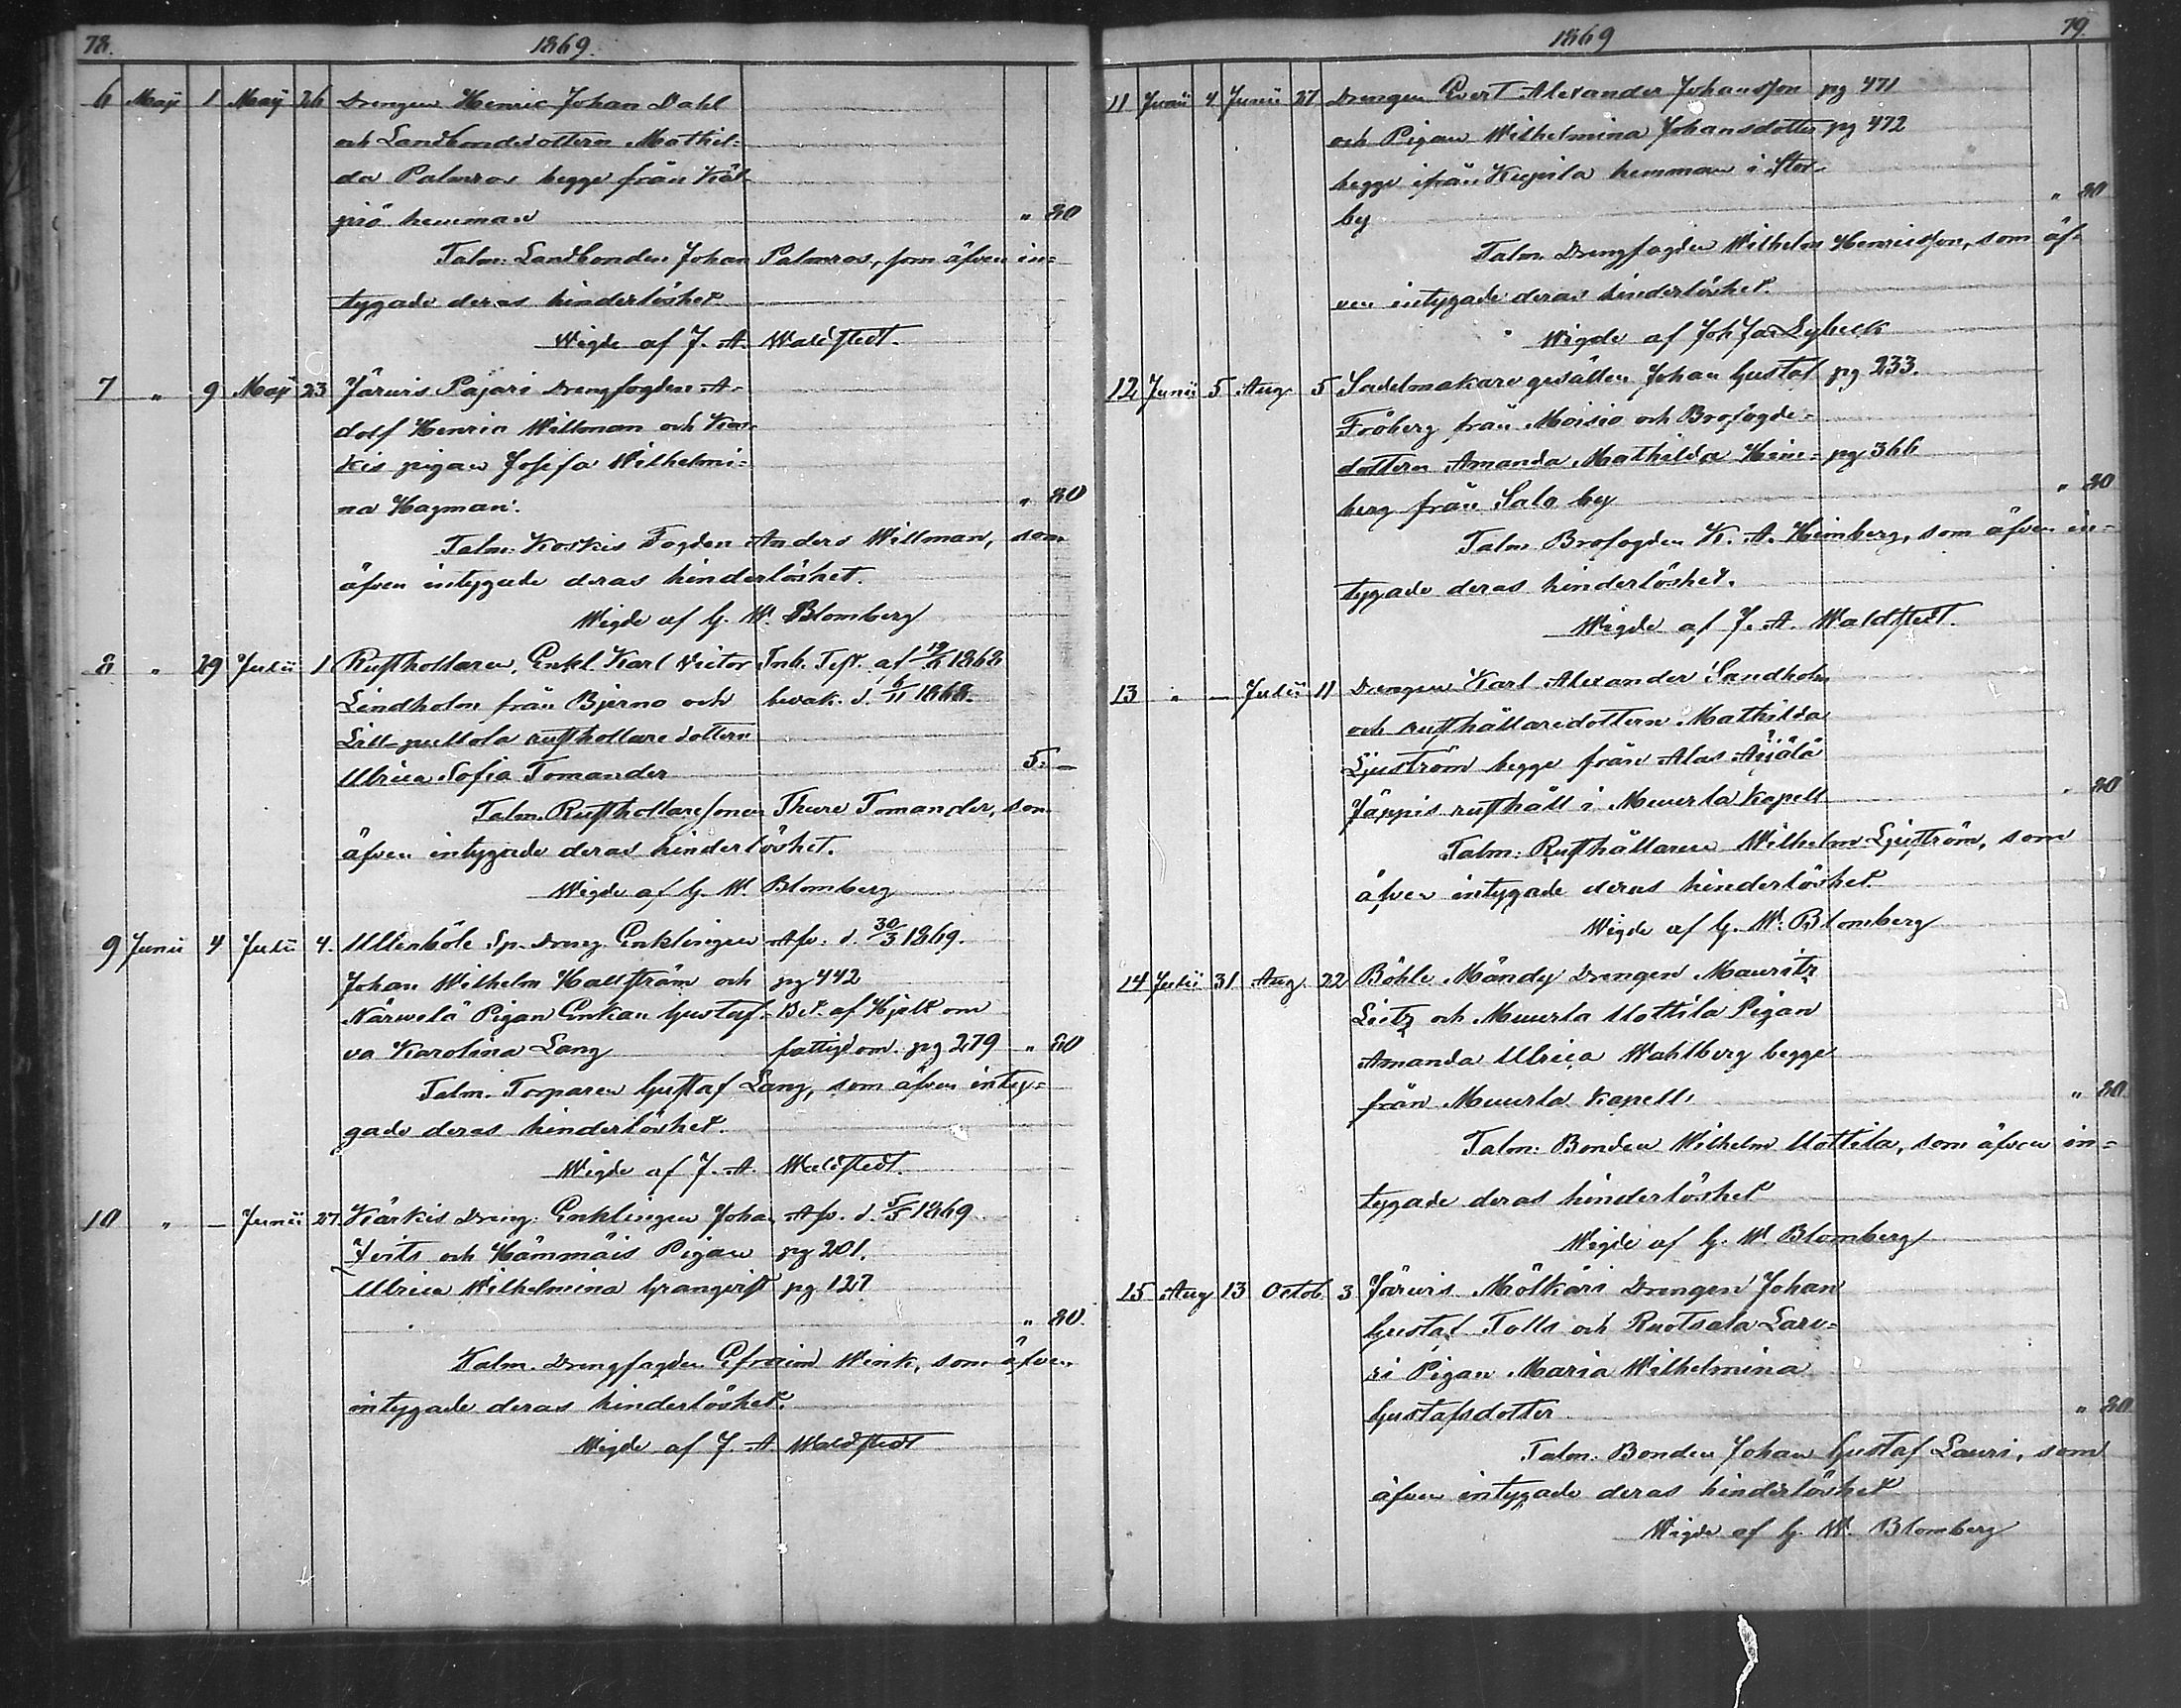 78. 1869.
6 Maji 1 Maij 26 Drengen Henric Johan Dahl
och Landbondedottern Mathil=
da Palmros begge från Käl-
piö hemman " 80
Talm: Landbonden Johan Palmros, som äfven in=
tygade deras hinderlöshet
Wigde af J. A. Waldstedt.
7 " 9 Maij 23 Järwis Pajari Drengfogden A-
dolf Henric Willman och Kos-
kis pigan Josefa Wilhelmi=
na Hagman: " 80
Talm: Koskis Fogden Anders Willman, som
äfven intygade deras hinderlöshet.
Wigde af G. W. Blomberg
8 " 29 Julii 1 Rusthollaren, Enkl. Karl Victor Inb. Test. af 1868
Lindholm från Bjerno och bevak. d. 6/11 1868.
Lill-pullola rusthollare dottern
Ulrica Sofia Tomander 5. –
Talm. Rusthollaresonen Thure Tomander, som
äfven intygade deras hinderlöshet.
Wigde af G. W. Blomberg
9 Junii 4 Julii 4. Ullenböle Sp. Dreng Enklingen Afv. d. 30/3 1869.
Johan Wilhelm Hallström och pg 442
Närwelä Pigan Enkan Gustaf= Bet. af Hjelt om
va Karolina Lang fattigdom. pg 279 " 80
Talm. Torparen Gustaf Lang, som äfven inty=
gade deras hinderlöshet.
Wigde af J. A. Waldstedt.
10 " – Junii 27. Kärkis Dreng. Enklingen Johan Afv. d. 5/5 1869
och Hämmäis Pigan pg 201.
Ulrica Wilhelmina Granqvist pg 127
" 80.
Talm. Drengfogden Efraim Wink, som äfven
intygade deras hinderlöshet.
Wigde af J. A. Waldstedt
1869 79.
11 Junii 4 Junii 27 Drengen Evert Alexander Johansson pg 471
och Pigan Wilhelmina Johansdotter pg 472
begge ifrån Kupila hemman i Stor-
by " 80
Talm. Drengfogden Wilhelm Henricsson, som äf-
ven intygade deras hinderlöshet.
Wigde af Joh Jac Lybeck
12 Junii 5 Aug. 5 Sadelmakaregesällen Johan Gustaf pg 233.
Fröberg från Moisio och Brofogde=
dottern Amanda Mathilda Heim= pg 366
berg från Salo by " 80
Talm. Brofogden K. A. Heimberg, som äfven in=
tygade deras hinderlöshet.
Wigde af J. A. Waldstedt.
13 " – Julii 11 Drengen Karl Alexander Sandholm
och rusthållaredottern Mathilda
Ljuström begge från Alas Äijälä
Jäppis rusthåll i Muurla Kapell " 80
Talm: Rusthållaren Wilhelm Ljuström, som
äfven intygade deras hinderlöshet
Wigde af G. W. Blomberg
14 Julii 31 Aug. 22 Böhle Mändy Drengen Mauritz
Leitz och Muurla Uottila Pigan
Amanda Ulrica Wahlberg begge
från Muurla Kapell. " 80.
Talm: Bonden Wilhelm Uottila, som äfven in=
tygade deras hinderlöshet
Wigde af G. W. Blomberg
15 Aug 13 Octob. 3 Järwis Mölkäri Drengen Johan
Gustaf Tolls och Ruotsala Lau=
ri Pigan Maria Wilhelmina
Gustafsdotter " 80
Talm: Bonden Johan Gustaf Lauri, som
äfven intygade deras hinderlöshet
Wigde af G. W. Blomberg